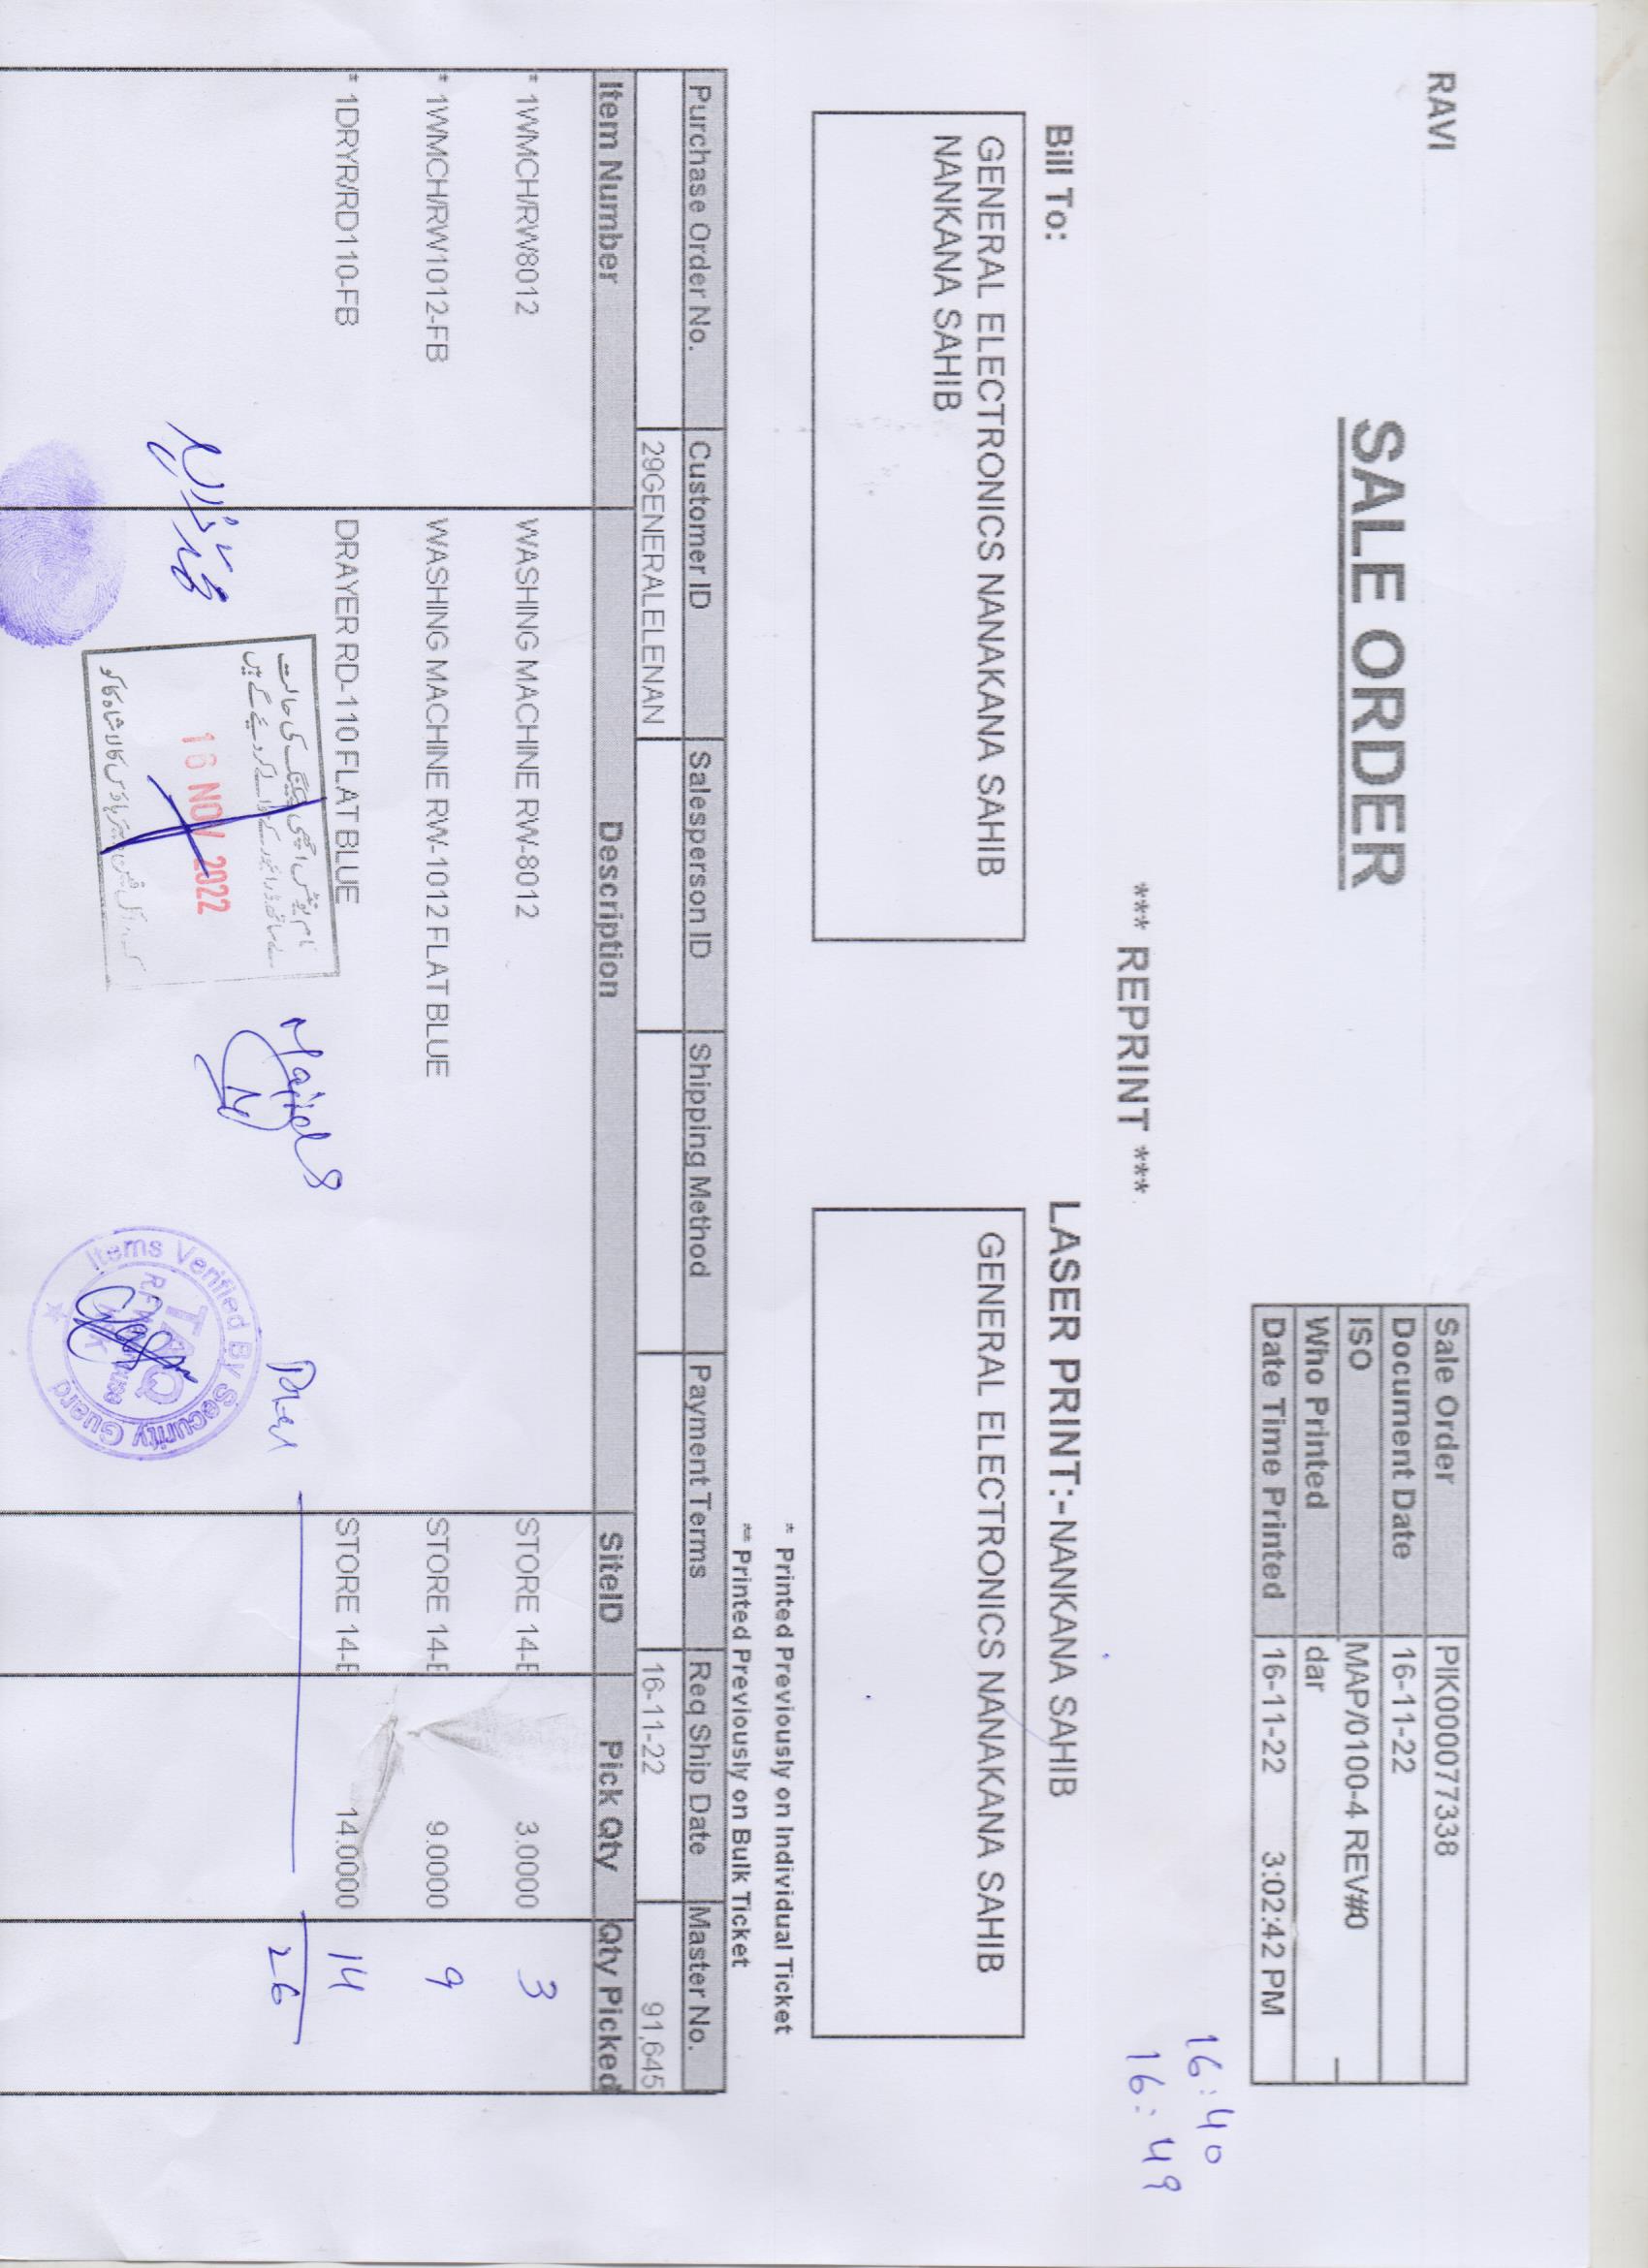 RAVI
SALE ORDER
Sale Order PIK000077338
Document Date 16-11-22
ISO MAP/0100-4 REV#0
Who Printed dar
Date Time Printed 16-11-22 3:02:42 PM
16:40
16:49
*** REPRINT ***
Bill To:
GENERAL ELECTRONICS NANAKANA SAHIB
NANKANA SAHIB
LASER PRINT:-NANKANA SAHIB
GENERAL ELECTRONICS NANAKANA SAHIB
* Printed Previously on Individual Ticket
** Printed Previously on Bulk Ticket
Purchase Order No. Customer ID Salesperson ID Shipping Method Payment Terms Req Ship Date Master No.
29GENERALELENAN 16-11-22 91,645
Item Number Description SiteID Pick Qty Qty Picked
* 1WMCH/RW8012 WASHING MACHINE RW-8012 STORE 14-E 3.0000 3
* 1WMCH/RW1012-FB WASHING MACHINE RW-1012 FLAT BLUE STORE 14-E 9.0000 9
* 1DRYR/RD110-FB DRAYER RD-110 FLAT BLUE STORE 14-E 14.0000 14
26
نام یونٹس اچھی پیکنگ کی حالت
کے ساتھ ڈرائیور کے حوالے کر دیئے گئے ہیں
16 NOV 2022
ویئر ہاؤس کالا شاہ کاکو
Majid
محمد
Items Verified By Security Guard